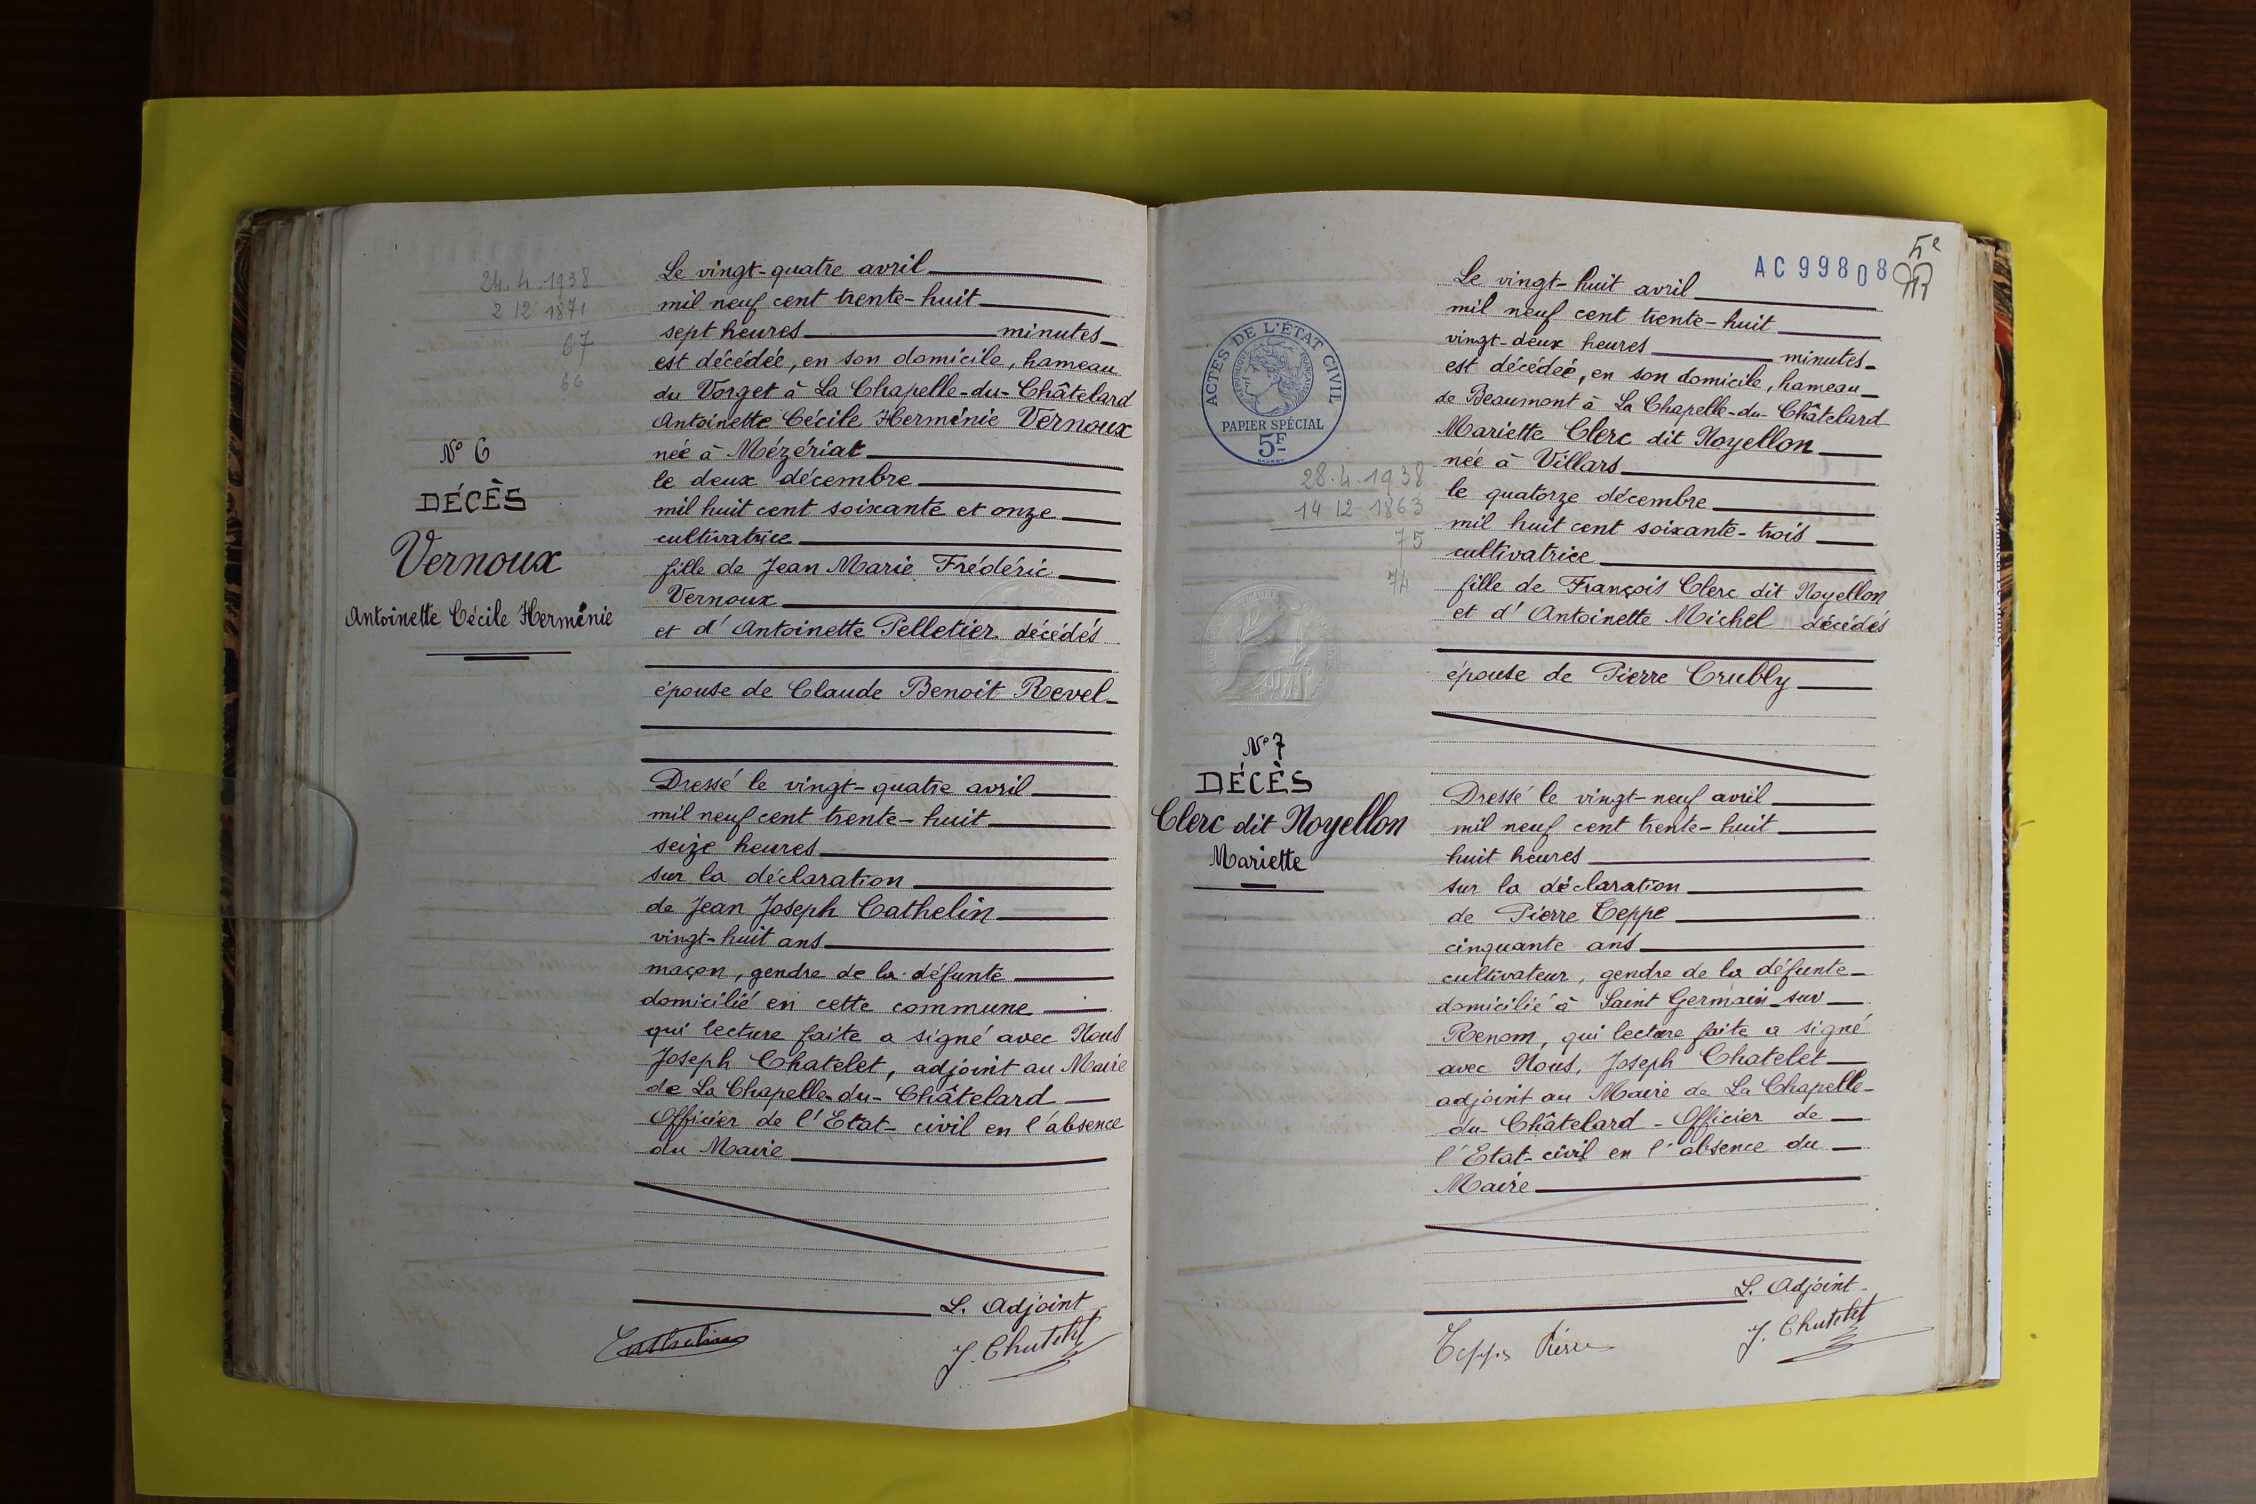 24.4.1938
2 12 1871
67
66
N° 6
DÉCÈS
Vernoux
Antoinette Cécile Herménie
Le vingt-quatre avril
mil neuf cent trente-huit
sept heures minutes
est décédée, en son domicile, hameau
du Vorget à La Chapelle-du-Châtelard
Antoinette Cécile Herménie Vernoux
née à Mézériat
le deux décembre
mil huit cent soixante et onze
cultivatrice
fille de Jean Marie Frédéric
Vernoux
et d'Antoinette Pelletier décédés
épouse de Claude Benoit Revel
Dressé le vingt-quatre avril
mil neuf cent trente-huit
seize heures
sur la déclaration
de Jean Joseph Cathelin
vingt-huit ans
maçon, gendre de la défunte
domicilié en cette commune
qui lecture faite a signé avec Nous
Joseph Chatelet, adjoint au Maire
de La Chapelle-du-Châtelard
Officier de l'Etat-civil en l'absence
du Maire
L. Adjoint
J. Chatelet
AC 99808
5e
ACTES DE L'ÉTAT CIVIL
RÉPUBLIQUE FRANÇAISE
PAPIER SPÉCIAL
5F
28.4.1938
14 12 1863
75
74
N° 7
DÉCÈS
Clerc dit Noyellon
Mariette
Le vingt-huit avril
mil neuf cent trente-huit
vingt-deux heures minutes
est décédée, en son domicile, hameau
de Beaumont à La Chapelle-du-Châtelard
Mariette Clerc dit Noyellon
née à Villars
le quatorze décembre
mil huit cent soixante-trois
cultivatrice
fille de François Clerc dit Noyellon
et d'Antoinette Michel décédés
épouse de Pierre Crubly
Dressé le vingt-neuf avril
mil neuf cent trente-huit
huit heures
sur la déclaration
de Pierre Teppe
cinquante ans
cultivateur, gendre de la défunte
domicilié à Saint Germain-sur
Renom, qui lecture faite a signé
avec Nous, Joseph Chatelet
adjoint au Maire de La Chapelle-
du-Châtelard - Officier de
l'Etat-civil en l'absence du
Maire
L. Adjoint
Teppe Pierre
J. Chatelet